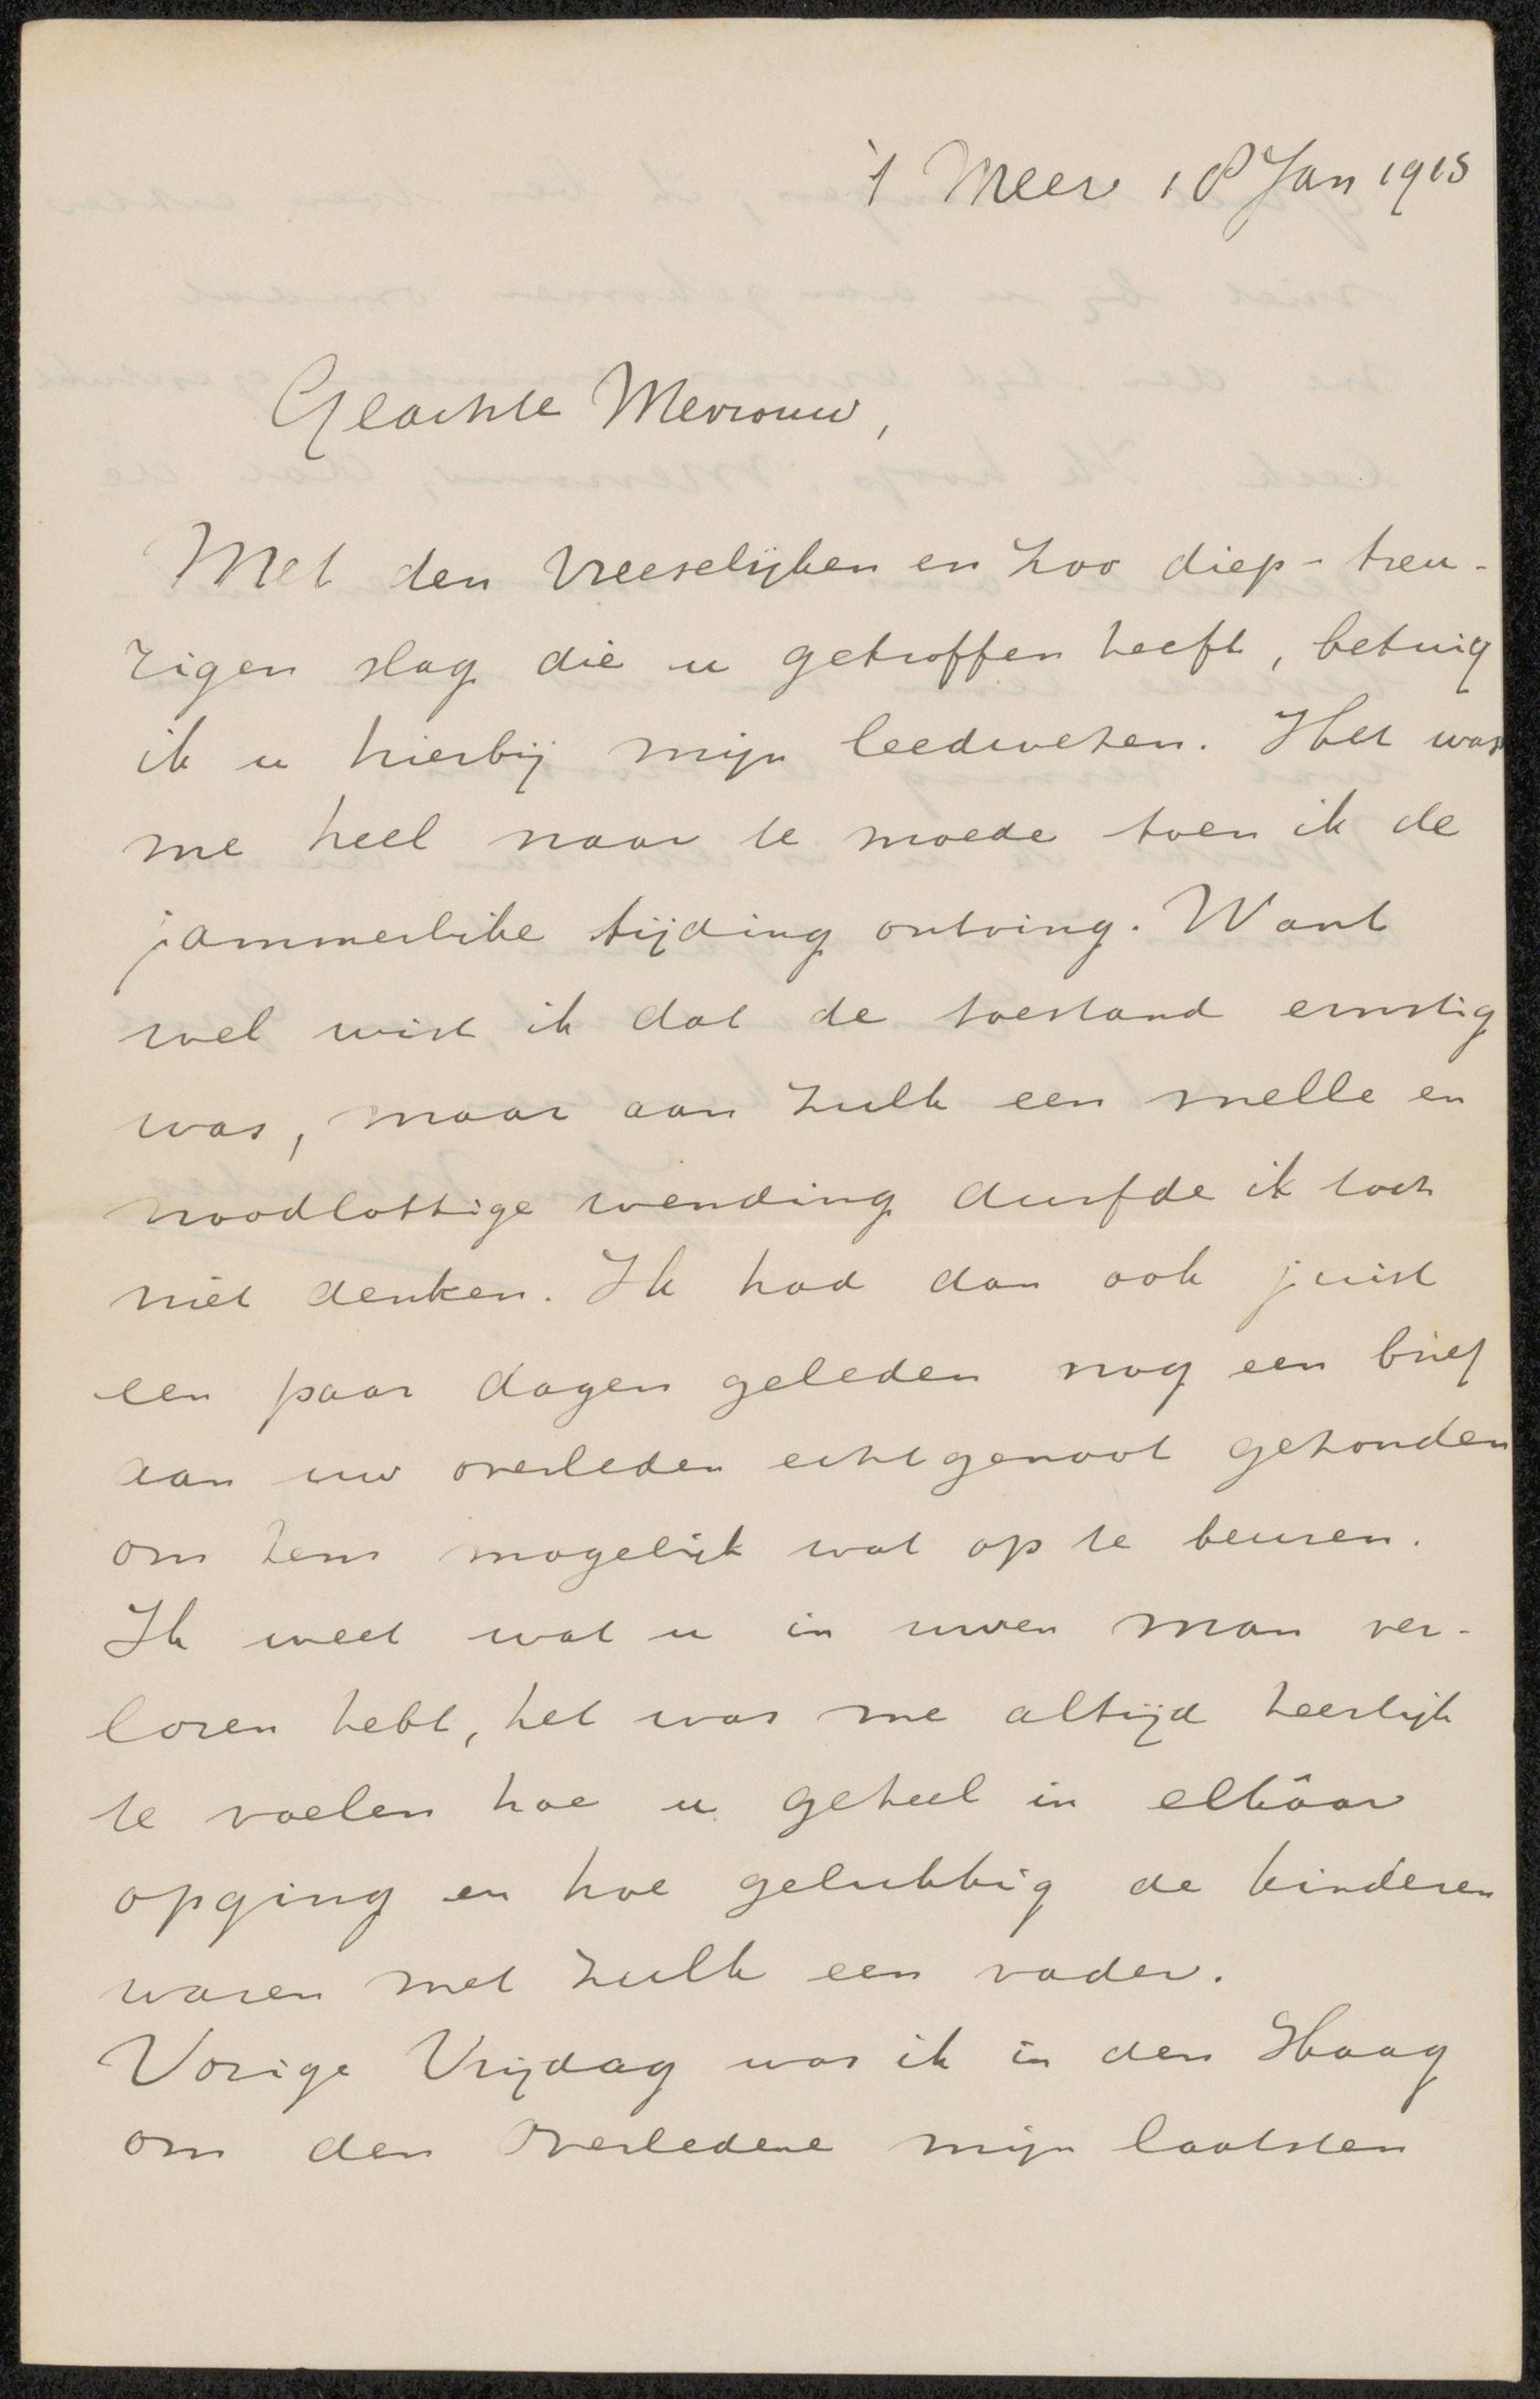 't Meer 18 Jan 1915
Geachte Mevrouw,
Met den vreeselijken en zoo diep-treu-
rigen slag die u getroffen heeft, betuig
ik u hierbij mijn leedwezen. Het was
me heel naar te moede toen ik de
jammerlike tijding ontving. Want
wel wist ik dat de toestand ernstig
was, maar aan zulk een snelle en
noodlottige wending durfde ik toch
niet denken. Ik had dan ook juist
een paar dagen geleden nog een brief
aan uw overleden echtgenoot gezonden
om hem mogelijk wat op te beuren.
Ik weet wat u in uwen man ver-
loren hebt, het was me altijd heerlijk
te voelen hoe u geheel in elkâar
opging en hoe gelukkig de kinderen
waren met zulk een vader.
Vorige Vrijdag was ik in den Haag
om den overledene mijn laatsten